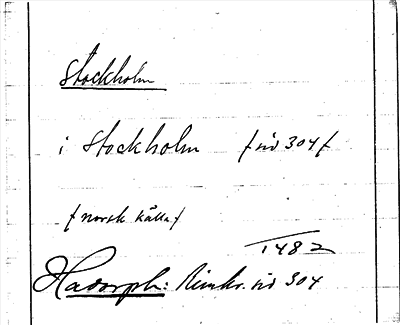 Stockholm
i Stockholm /sid 304/
/norsk källa/
1482
Hadorph: Rimkr. sid 304